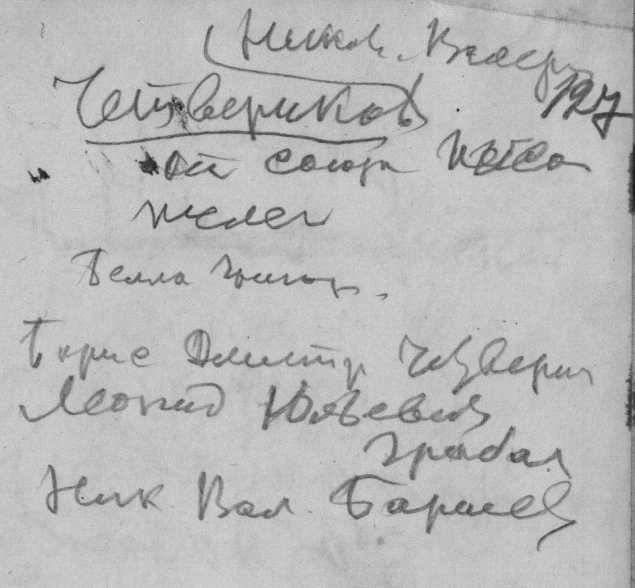 Никол. Валер
Четвериков
127
от союза писа
телей
Белла Григор.
Борис Дмитр. Четверик
Леонид Юльевич
Грабал
Ник. Вал. Барше